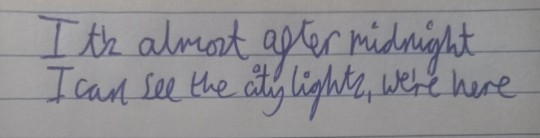 I th almost after midnight
I can see the city lights, we're here